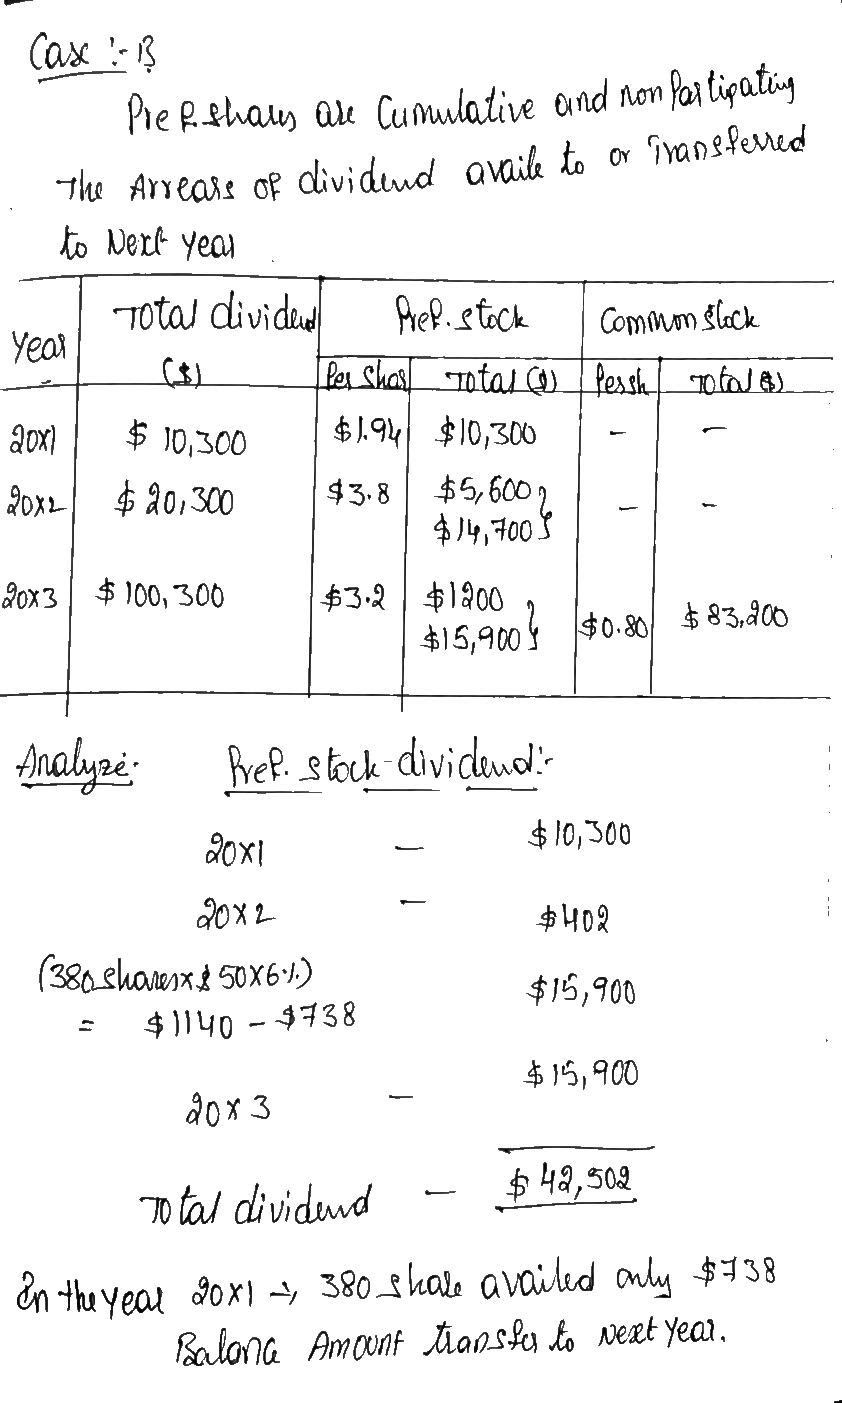 Case :- B
Pref. shares are Cumulative and non Partipating
The Arrears of dividend availe to or Transferred
to Next year
Year Total dividend ($) Pref. stock Common stock
Per Shar Total ($) Persh Total ($)
20X1 $ 10,300 $1.94 $10,300 - -
20X2 $ 20,300 $3.8 $5,600 - -
$14,700
20X3 $ 100,300 $3.2 $1200 $0.80 $ 83,200
$15,900
Analyze:- Pref. stock dividend:-
20X1 - $10,300
20X2 - $402
(380 shares x $ 50 X 6%) $15,900
= $1140 - $738
20X3 - $15,900
Total dividend - $ 42,502
In the year 20X1 → 380 share availed only $738
Balanc Amount transfer to Next Year.